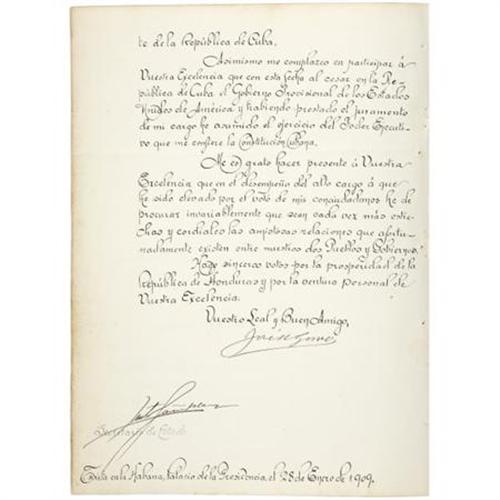 te de la República de Cuba.
Asimismo me complazco en participar á
Vuestra Excelencia que con esta fecha al cesar en la Re-
pública de Cuba el Gobierno Provisional de los Estados
Unidos de América y habiendo prestado el juramento
de mi cargo he asumido el ejercicio del Poder Ejecuti-
vo que me confiere la Constitución Cubana.
Me es grato hacer presente á Vuestra
Excelencia que en el desempeño del alto cargo á que
he sido elevado por el voto de mis conciudadanos he de
procurar invariablemente que sean cada vez más estre-
chas y cordiales las amistosas relaciones que afortu-
nadamente existen entre nuestros dos Pueblos y Gobiernos.
Hago sinceros votos por la prosperidad de la
República de Honduras y por la ventura personal de
Vuestra Excelencia.
Vuestro Leal y Buen Amigo,
José M Gómez
Secretario de Estado
Dada en la Habana, Palacio de la Presidencia, el 28 de Enero de 1909.